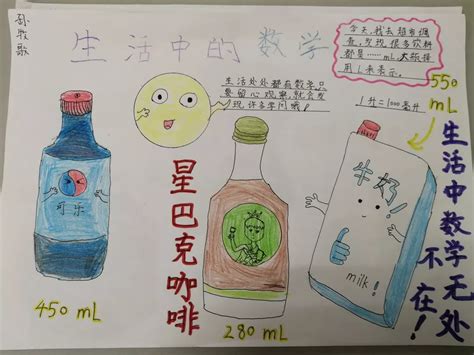 生活中的数学
今天,我去超市调
查,发现很多饮料
都是……mL,大瓶择
用L来表示。
生活处处都有数学,只
要留心观察,就会发
现许多学问哦!
1升=1000毫升
550
mL
可乐
450 mL
星巴克咖啡
280 mL
牛奶!
milk!
生活中数学无处
不在!